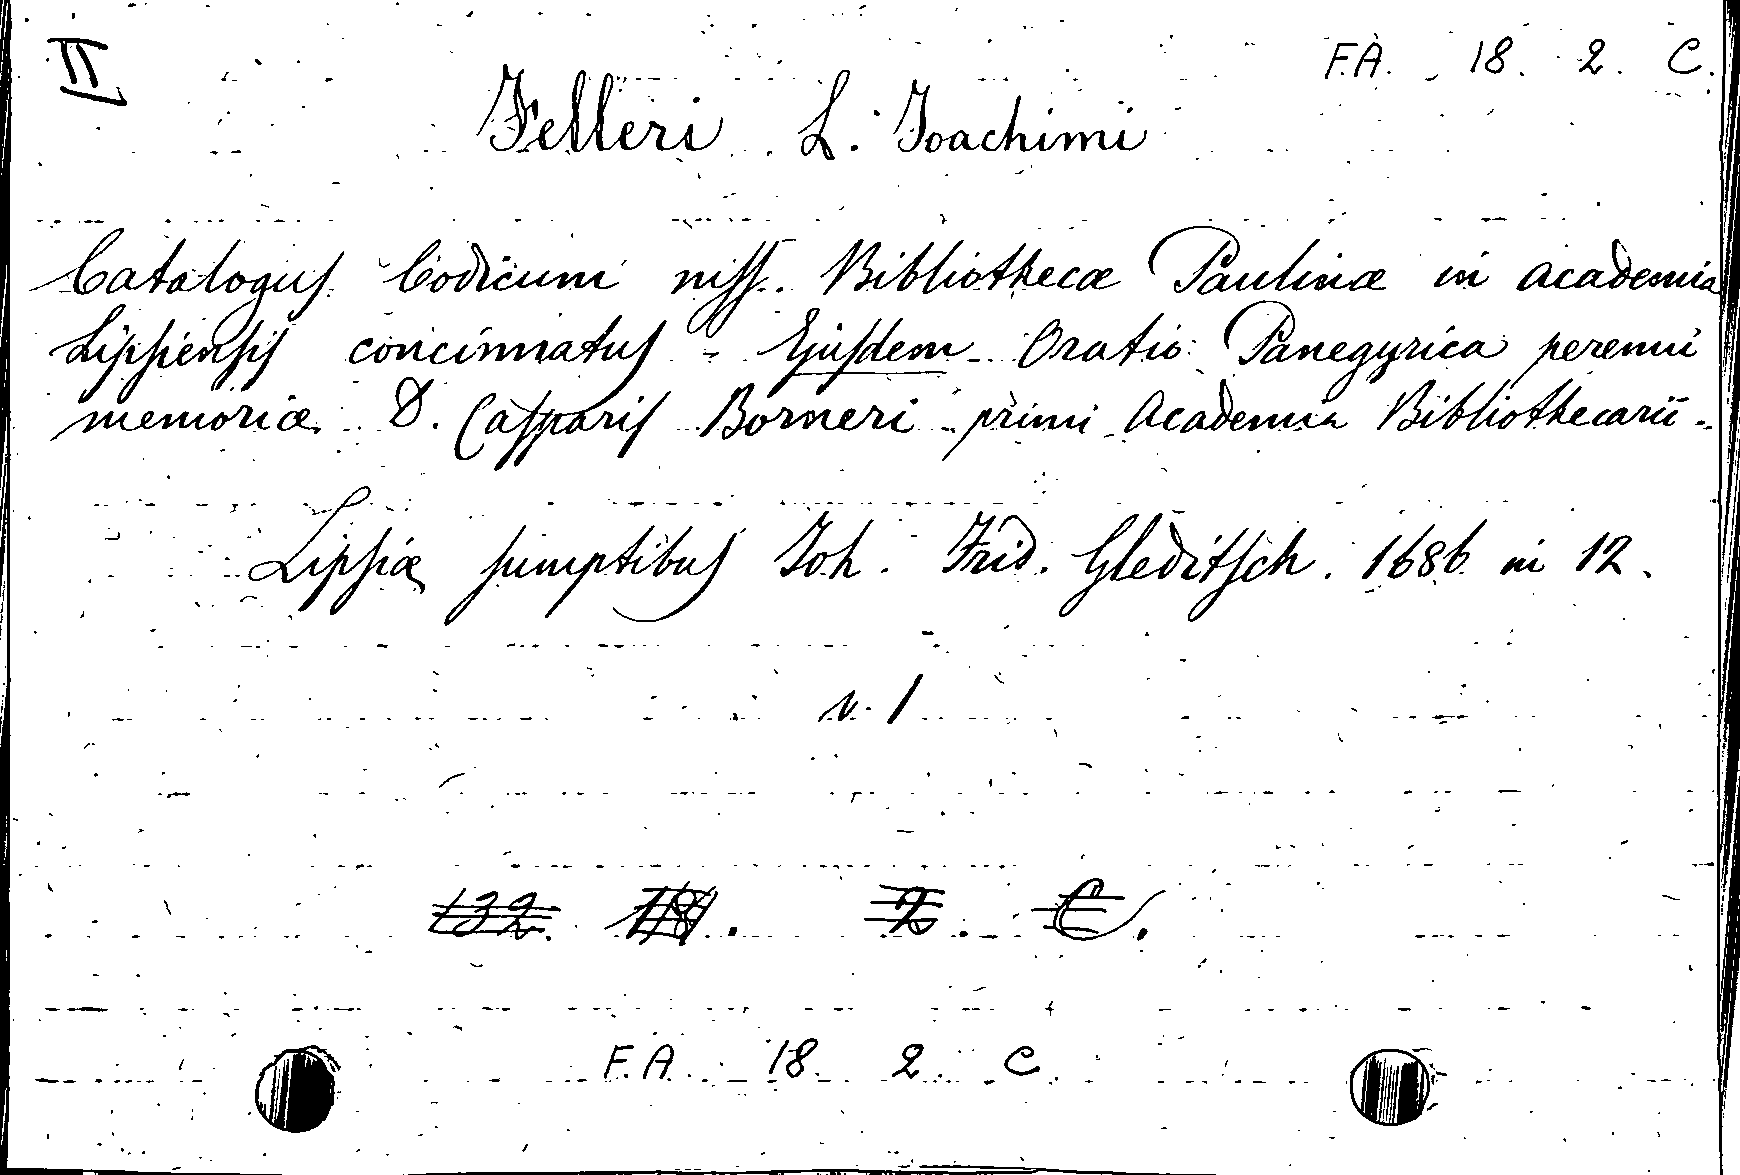 II
F.A. 18. 2. C.
Felleri L. Joachimi
Catalogus Codicum mss. Bibliothecæ Paulinæ in academia
Lipsiensis concinnatus - Ejusdem Oratio Panegyrica perenni
memoriæ D. Casparis Borneri primi Academia Bibliothecarii -
Lipsiæ sumptibus Joh. Frid. Gleditsch. 1686 in 12.
v. 1
132. 18. 2. C.
F.A. 18. 2. C.